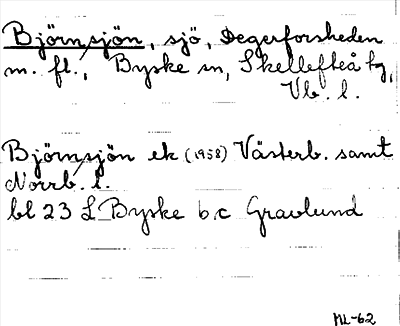 Björnsjön, sjö, Degerforsheden
m. fl., Byske sn, Skellefteå tg,
Vb. l.
Björnsjön ek (1958) Västerb. samt
Norrb. l.
bl 23 L Byske b c Gravlund
NL-62